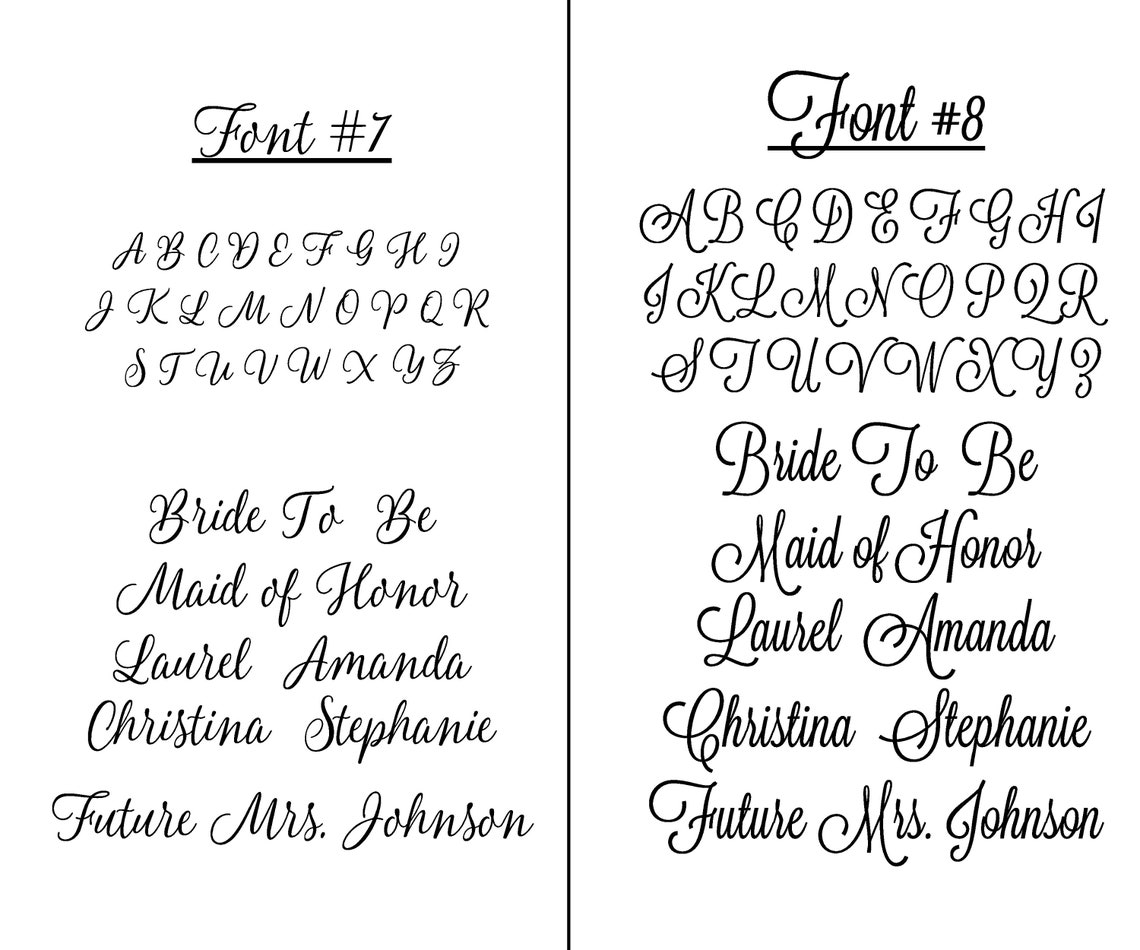 Font #7
A B C D E F G H I
J K L M N O P Q R
S T U V W X Y Z
Bride To Be
Maid of Honor
Laurel Amanda
Christina Stephanie
Future Mrs. Johnson
Font #8
A B C D E F G H I
J K L M N O P Q R
S T U V W X Y Z
Bride To Be
Maid of Honor
Laurel Amanda
Christina Stephanie
Future Mrs. Johnson